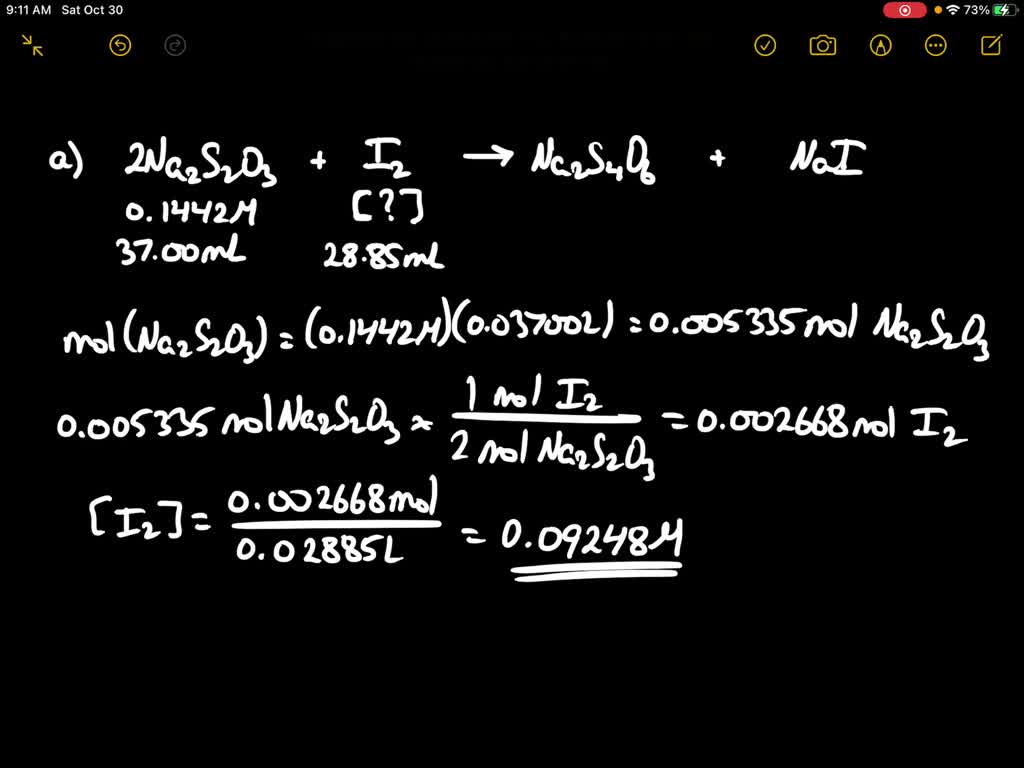 9:11 AM Sat Oct 30
73%
a) 2Na₂S₂O₃ + I₂ → Na₂S₄O₆ + NaI
0.1442M [?]
37.00mL 28.85mL
mol(Na₂S₂O₃) = (0.1442M)(0.03700L) = 0.005335 mol Na₂S₂O₃
0.005335 mol Na₂S₂O₃ × 1 mol I₂ / 2 mol Na₂S₂O₃ = 0.002668 mol I₂
[I₂] = 0.002668 mol / 0.02885L = 0.09248M